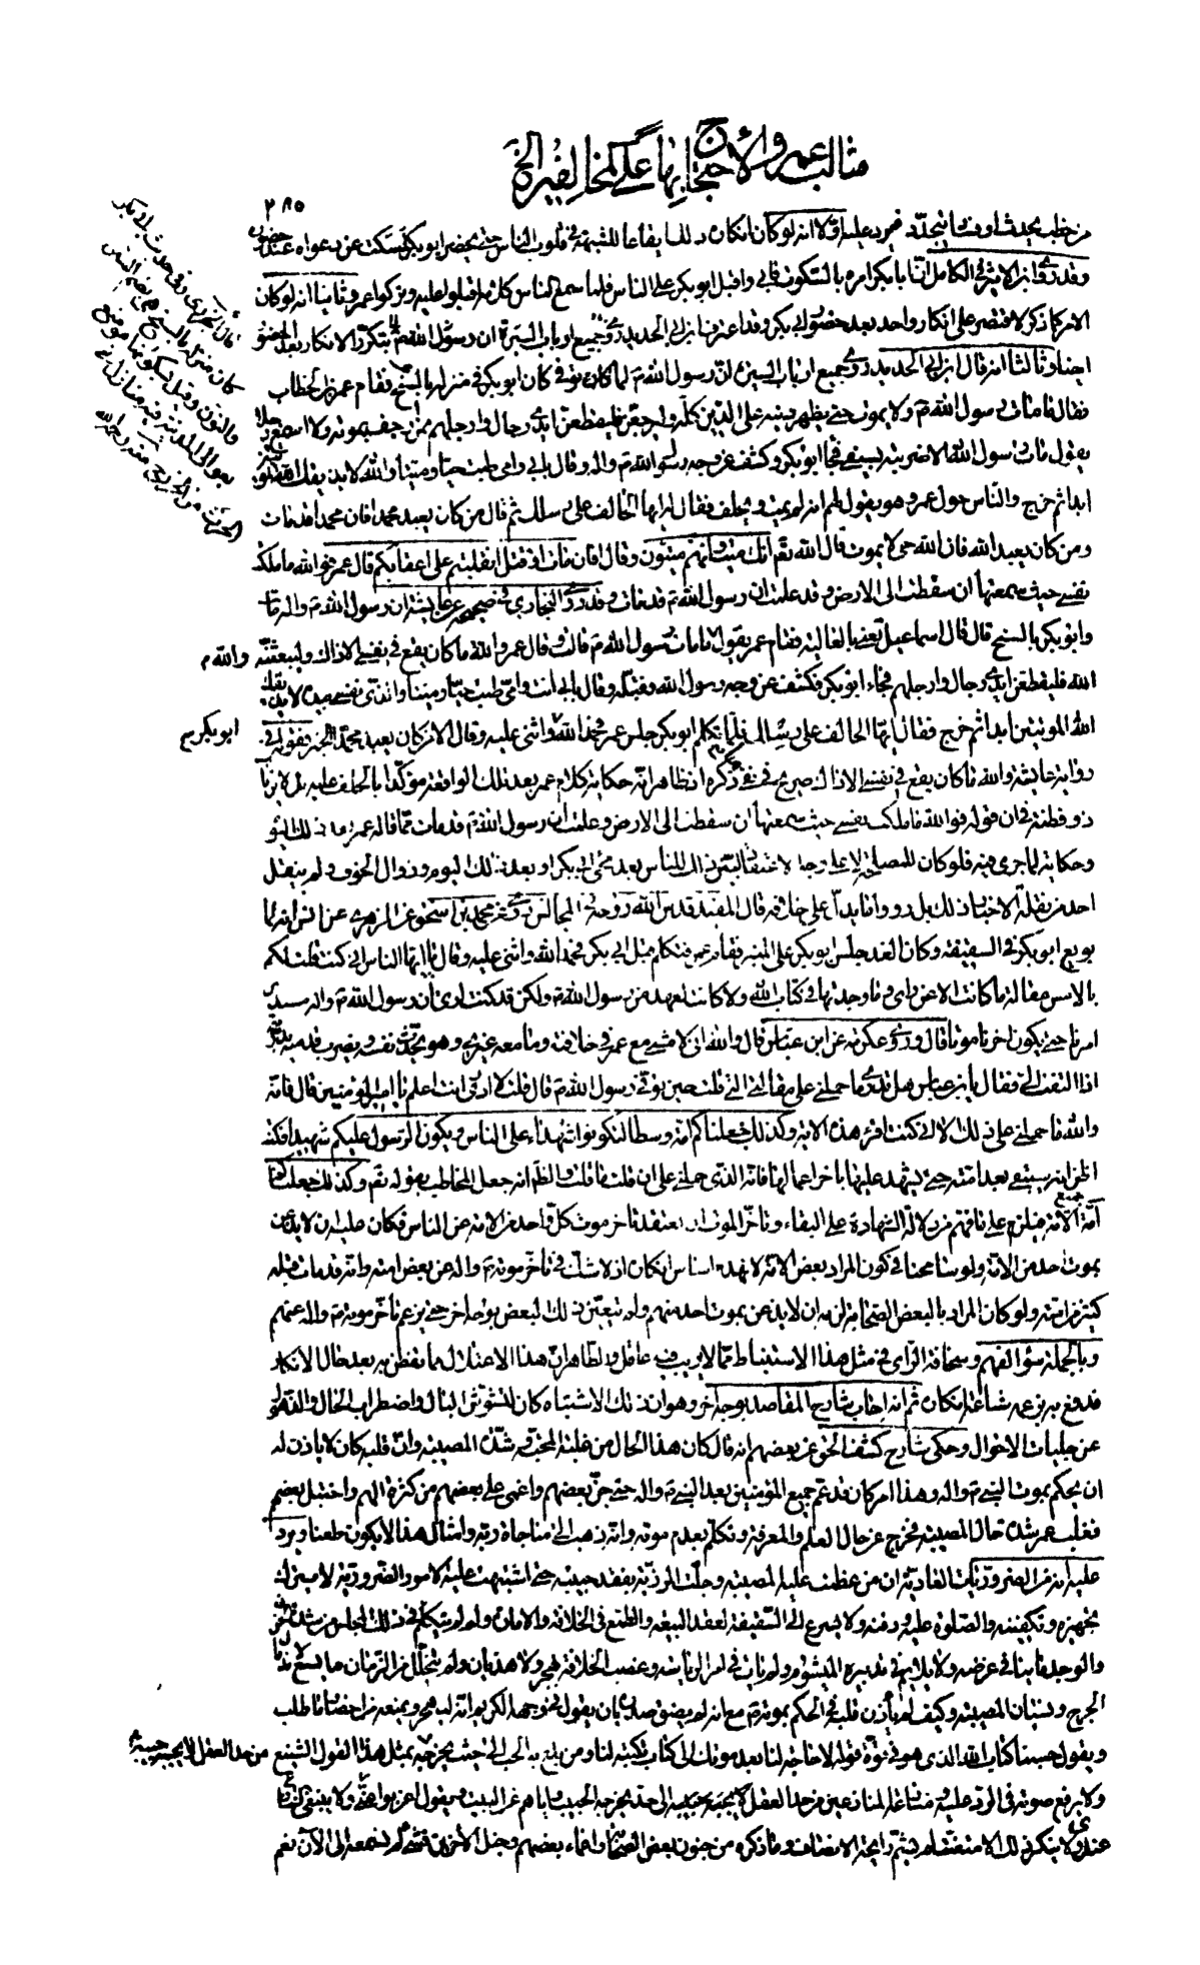 مثالب عمر والاحتجاج بها على المخالفين الخ
٢٨٥
من خطب يحدث او فتنة تتجدد فيرد عليه اولا انه لو كان انكاره ذلك ايقاعا للشبهة في قلوب الناس حتى يحضر ابو بكر لسكت عن دعواه عند حضوره
وقد روى ابن الاثير في الكامل ان ابا بكر امره بالسكوت فابى واقبل ابو بكر على الناس فلما سمع الناس كلامه اقبلوا عليه وتركوا عمر وثانيا انه لو كان
الامر كما ذكر لاقتصر على انكار واحد بعد حضور ابي بكر وقد اعترف ابن ابي الحديد بتكرر الانكار بعد الحضور
ايضا وثالثا انه قال ابن ابي الحديد روى جميع ارباب السيرة ان رسول الله ص لما توفي كان ابو بكر في منزله بالسنح فقام عمر بن الخطاب
فقال ما مات رسول الله ص ولا يموت حتى يظهر دينه على الدين كله وليرجعن فليقطعن ايدي رجال وارجلهم ممن ارجف بموته ولا اسمع رجلا
يقول مات رسول الله الا ضربته بسيفي فجاء ابو بكر وكشف عن وجه رسول الله ص واله وقال بابي وامي طبت حيا وميتا والله لا يذيقك الله الموتتين
ابدا ثم خرج والناس حول عمر وهو يقول لهم انه لم يمت ويحلف فقال له ايها الحالف على رسلك ثم قال من كان يعبد محمدا فان محمدا قد مات
ومن كان يعبد الله فان الله حي لا يموت قال الله تعم انك ميت وانهم ميتون وقال افان مات او قتل انقلبتم على اعقابكم قال عمر فوالله ما ملكت
نفسي حيث سمعتها ان سقطت الى الارض وقد علمت ان رسول الله ص قد مات وقد روى البخاري في صحيحه عن عايشة ان رسول الله ص واله مات
وابو بكر بالسنح قال قال اسماعيل تعني بالعالية فقام عمر يقول والله ما مات رسول الله ص قالت وقال عمر والله ما كان يقع في نفسي الا ذاك وليبعثنه
الله فليقطعن ايدي رجال وارجلهم فجاء ابو بكر فكشف عن وجه رسول الله وقبله وقال بابي انت وامي طبت حيا وميتا والذي نفسي بيده لا يذيقك
الله الموتتين ابدا ثم خرج فقال ايها الحالف على رسلك فلما تكلم ابو بكر جلس عمر فحمد الله واثنى عليه وقال الا من كان يعبد محمدا الخبر فقوله في
رواية عايشة والله ما كان يقع في نفسي الا ذاك صريح في نفي ما ذكره اذ ظاهر انه حكاية كلام عمر بعد تلك الواقعة مؤكدا بالحلف عليه بل لا يرتاب
ذو فطنة في ان قوله فوالله ما ملكت نفسي حيث سمعتها ان سقطت الى الارض وعلمت ان رسول الله ص قد مات مما قاله عمر بعد ذلك اليوم
وحكاية لما جرى فيه فلو كان للمصلحة لا على وجه الاعتقاد لبين ذلك للناس بعد مجيء ابي بكر او بعد ذلك اليوم وزوال الخوف ولم ينقل
احد من نقلة الاخبار ذلك بل رووا ما يدل على خلافه قال المفيد قدس الله روحه في المجالس روى عن محمد بن اسحق عن الزهري عن انس انه لما
بويع ابو بكر في السقيفة وكان الغد جلس ابو بكر على المنبر فقام عمر فتكلم قبل ابي بكر فحمد الله واثنى عليه وقال يا ايها الناس اني كنت قلت لكم
بالامس مقالة ما كانت الا عن رأي وما وجدتها في كتاب الله ولا كانت لعهد من رسول الله ص ولكن قد كنت ارى ان رسول الله ص واله سيدبر
امرنا حتى يكون اخرنا موتا قال وروى عكرمة عن ابن عباس قال والله اني لامشي مع عمر في خلافته وما معه غيري وهو يحدث نفسه ويضرب قدميه بدرته
اذا التفت الي فقال يابن عباس هل تدري ما حملني على مقالتي التي قلت حين توفي رسول الله ص قال قلت لا ادري انت اعلم يا امير المؤمنين قال فانه
والله ما حملني على ذلك الا اني كنت اقرء هذه الاية وكذلك جعلناكم امة وسطا لتكونوا شهداء على الناس ويكون الرسول عليكم شهيدا فكنت
اظن انه سيبقى بعد امته حتى يشهد عليها باخر اعمالها فانه الذي حملني على ان قلت ما قلت والظ انه جعل المخاطب بقوله تعم وكذلك جعلناكم
امة جميع الامة فيلزم على ما فهمه من دلالة الشهادة على البقاء وتاخر الموت ان يعتقد تاخر موت كل واحد من الامة عن الناس فكان عليه ان لا يذعن
بموت احد من الامة ولو سامحنا في كون المراد بعض الامة لانهدم اساس انكاره اذ لا شك في تاخر موته ص واله عن بعض امته وانه قد مات قبله
كثير من امته ولو كان المراد بالبعض الصحابة لزمه ان لا يذعن بموت احد منهم ولم يتعين ذلك البعض بوجه اخر حتى يزعم تاخر موته ص واله عنهم
وبالجملة سوء الفهم وسخافة الرأي في مثل هذا الاستنباط مما لا يريب فيه عاقل والظاهر ان هذا الاعتلال مما تفطن به بعد حال الانكار
فدفع به بزعمه شناعة انكاره ثم انه اجاب شارح المقاصد بوجه آخر وهو ان ذلك الاشتباه كان لتشوش البال واضطراب الحال والذهول
عن جليات الاحوال وحكى شارح كشف الحق عن بعضهم انه قال كان هذا الحال من غلبة المحبة وشدة المصيبة وان قلبه كان لا ياذن له
ان يحكم بموت النبي ص واله وهذا امر كان قد عم جميع المؤمنين بعد النبي ص واله حتى جن بعضهم واغمي على بعضهم من كثرة الهم واختبل بعضهم
فغلب عمر شدة حال المصيبة فخرج عن حال العلم والمعرفة وتكلم بعدم موته وانه ذهب الى مناجاة ربه وامثال هذا لا يكون طعنا ويرد
عليه انه من الضروريات العادية ان من عظمت عليه المصيبة وجلت الرزية بفقد حبيبه حتى اشتبهت عليه الامور الضرورية لا يترك
تجهيزه وتكفينه والصلوة عليه ودفنه ولا يسرع الى السقيفة لعقد البيعة والطمع في الخلافة والامارة ولو لم يتكلم في ذلك المجلس من شدة الحزن
والوجد ما ينافي غرضه ولا يلايم في تدبيره الميشوم ولم يات في امر الرياسة وغصب الخلافة بهجر ولا هذيان ولم يتخلل من الزمان ما يسع لاندمال
الجرح ونسيان المصيبة وكيف لم ياذن قلبه في الحكم بموته ص مع انه لم يضق صدره بان يقول في وجهه الكريم انه ليهجر ويمنعه من احضار ما طلب
ويقول حسبنا كتاب الله الذي هو في قوة قوله لا حاجة لنا بعد موتك الى كتاب تكتبه لنا ومن بلغ به الحب الى حيث يخرجه بمثل هذا القول الشنيع من حد العقل لا يجبه حبيبه
ولا يرفع صوته في الرد عليه ومنازعة المنازعين من حد العقل لا يجبه حبيبه الى حد يخرجه الحبيب واياهم عن البيت ويقول اعزبوا عني ولا ينبغي التنازع
عندي ولا ينكر ذلك الا متعنت لم يشم رايحة الانصاف وما ذكره من جنون بعض الصحابة واغماء بعضهم وخبل الاخرين فشيء لم نسمعه الى الآن نعم
قال الجزري في حديث ابي بكر
كان منزله بالسنح هي بضم السين
والنون وقيل بسكونها موضع
بعوالي المدينة فيه منازل بني
الحرث من الخزرج منه رحمه الله
والله م
ابو بكر م